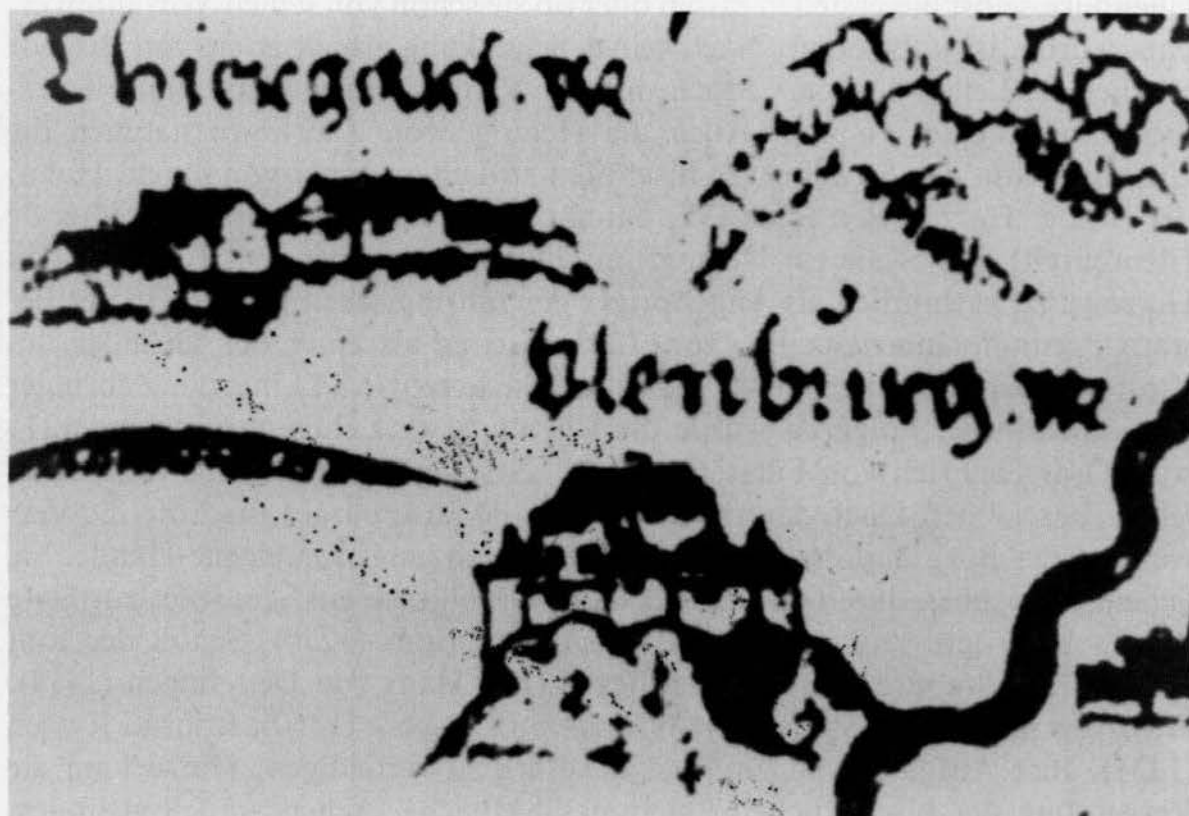 Thiergart.
Ulenburg.